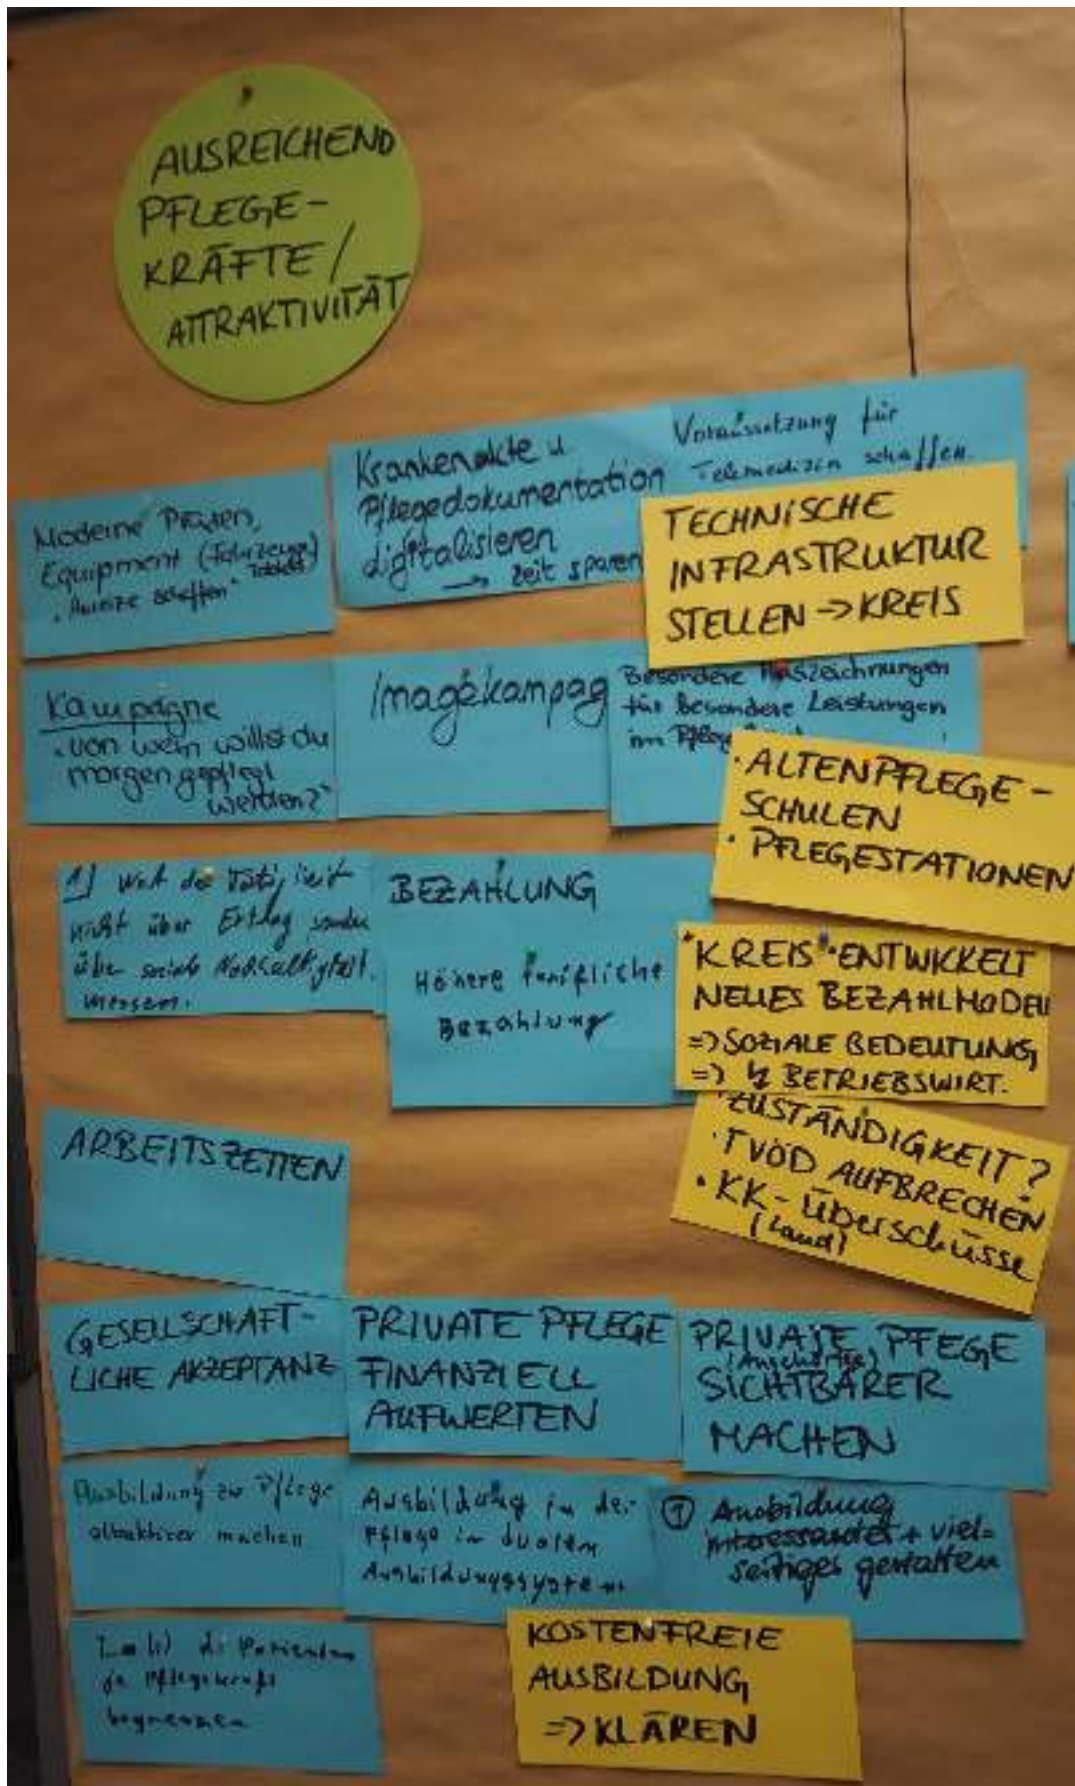 AUSREICHEND
PFLEGE-
KRÄFTE/
ATTRAKTIVITÄT
Moderne
Equipment (Fahrzeuge)
Tablets
"Anreize schaffen"
Krankenakte u
Pflegedokumentation
digitalisieren
→ Zeit sparen
Voraussetzung für
Telemedizin schaffen.
TECHNISCHE
INFRASTRUKTUR
STELLEN → KREIS
Kampagne
"von wem willst du
morgen gepflegt
werden?"
Imagekampag
Besondere Auszeichnungen
für besondere Leistungen
im
· ALTENPFLEGE-
SCHULEN
· PFLEGESTATIONEN
1) Wert der Tätigkeit
nicht über Ertrag sonder
über soziale Nachhaltigkeit
messen.
BEZAHLUNG
Höhere tarifliche
Bezahlung
KREIS ENTWICKELT
NEUES BEZAHLMODELL
=> SOZIALE BEDEUTUNG
=> BETRIEBSWIRT.
ZUSTÄNDIGKEIT?
· TVÖD AUFBRECHEN
· KK-Überschüsse
(Land)
ARBEITSZEITEN
GESELLSCHAFT-
LICHE AKZEPTANZ
PRIVATE PFLEGE
FINANZIELL
AUFWERTEN
PRIVATE PFEGE
(Angehörige)
SICHTBARER
MACHEN
Ausbildung zur Pflege
attraktiver machen
Ausbildung in der
Pflege im dualem
Ausbildungssystem
① Ausbildung
interessanter + viel=
seitiges gestalten
je Pflegekraft
begrenzen
KOSTENFREIE
AUSBILDUNG
=> KLÄREN